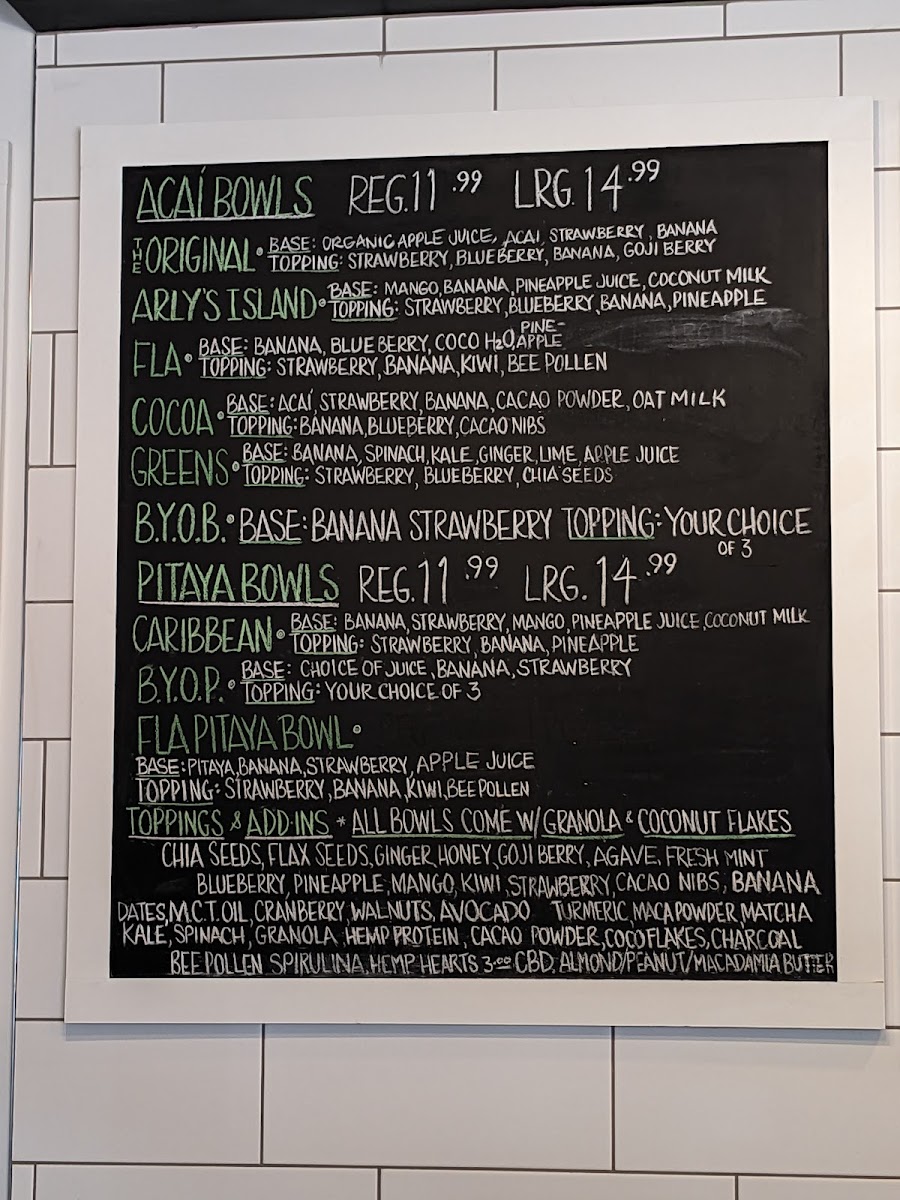 AÇAÍ BOWLS REG. 11.99 LRG. 14.99
THE ORIGINAL • BASE: ORGANIC APPLE JUICE, ACAI, STRAWBERRY, BANANA
TOPPING: STRAWBERRY, BLUEBERRY, BANANA, GOJI BERRY
ARLY'S ISLAND • BASE: MANGO, BANANA, PINEAPPLE JUICE, COCONUT MILK
TOPPING: STRAWBERRY, BLUEBERRY, BANANA, PINEAPPLE
FLA • BASE: BANANA, BLUEBERRY, COCO H2O, PINE-APPLE
TOPPING: STRAWBERRY, BANANA, KIWI, BEE POLLEN
COCOA • BASE: AÇAÍ, STRAWBERRY, BANANA, CACAO POWDER, OAT MILK
TOPPING: BANANA, BLUEBERRY, CACAO NIBS
GREENS • BASE: BANANA, SPINACH, KALE, GINGER, LIME, APPLE JUICE
TOPPING: STRAWBERRY, BLUEBERRY, CHIA SEEDS
B.Y.O.B. • BASE: BANANA STRAWBERRY TOPPING: YOUR CHOICE
OF 3
PITAYA BOWLS REG. 11.99 LRG. 14.99
CARIBBEAN • BASE: BANANA, STRAWBERRY, MANGO, PINEAPPLE JUICE, COCONUT MILK
TOPPING: STRAWBERRY, BANANA, PINEAPPLE
B.Y.O.P. • BASE: CHOICE OF JUICE, BANANA, STRAWBERRY
TOPPING: YOUR CHOICE OF 3
FLA PITAYA BOWL •
BASE: PITAYA, BANANA, STRAWBERRY, APPLE JUICE
TOPPING: STRAWBERRY, BANANA, KIWI, BEE POLLEN
TOPPINGS & ADD-INS * ALL BOWLS COME W/ GRANOLA & COCONUT FLAKES
CHIA SEEDS, FLAX SEEDS, GINGER, HONEY, GOJI BERRY, AGAVE, FRESH MINT
BLUEBERRY, PINEAPPLE, MANGO, KIWI, STRAWBERRY, CACAO NIBS, BANANA
DATES, M.C.T. OIL, CRANBERRY, WALNUTS, AVOCADO TURMERIC, MACA POWDER, MATCHA
KALE, SPINACH, GRANOLA, HEMP PROTEIN, CACAO POWDER, COCO FLAKES, CHARCOAL
BEE POLLEN SPIRULINA, HEMP HEARTS 3.00 CBD, ALMOND/PEANUT/MACADAMIA BUTTER